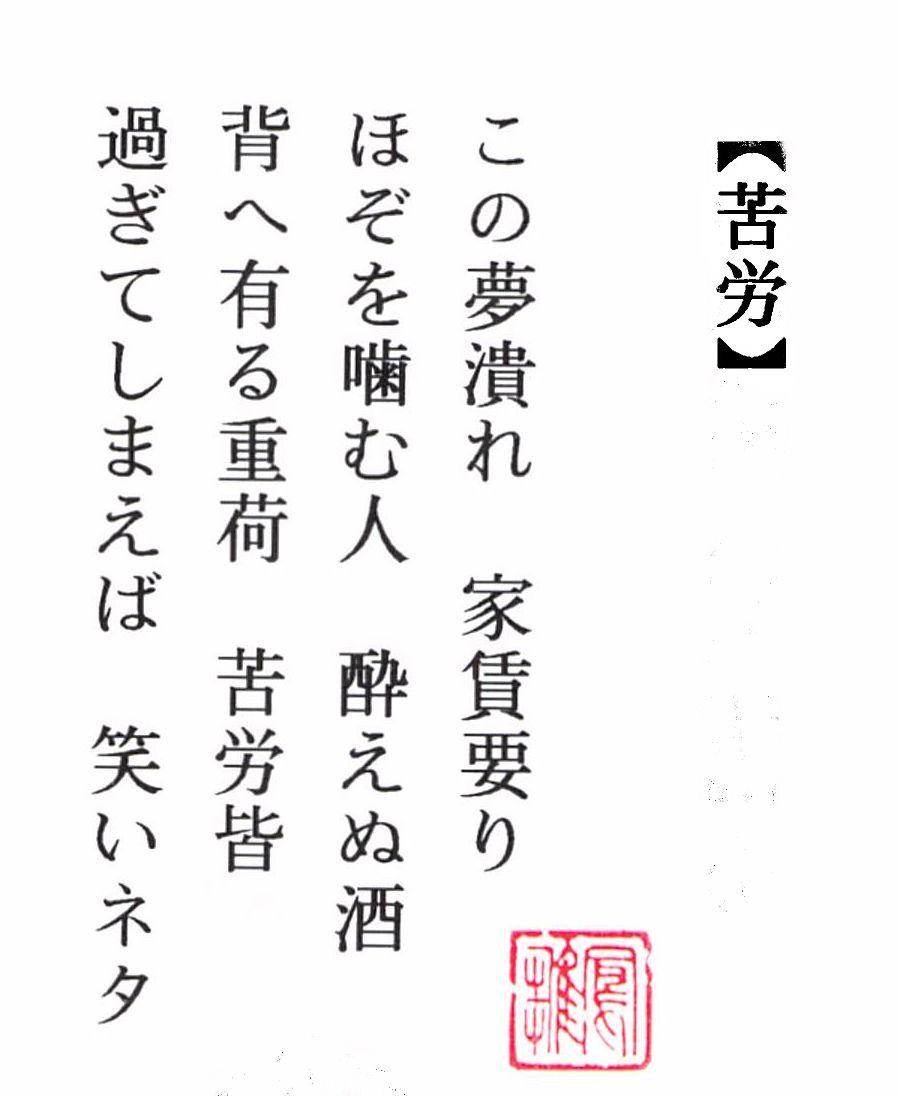 【苦労】
この夢潰れ　家賃要り
ほぞを噛む人　酔えぬ酒
背へ有る重荷　苦労皆
過ぎてしまえば　笑いネタ